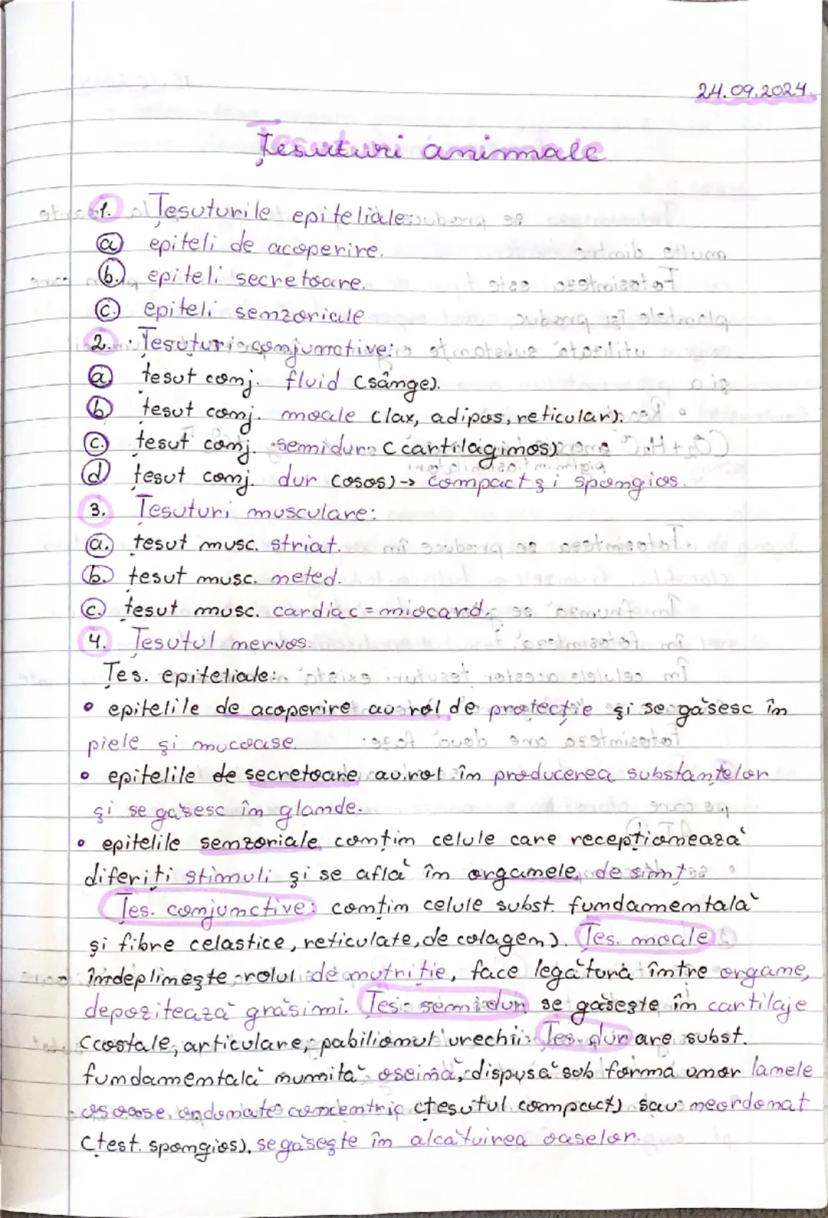 24.09.2024.
Țesuturi animale
1. Țesuturile epiteliale:
a epiteli de acoperire.
b. epiteli secretoare.
c. epiteli senzoriale
2. Țesuturi conjunctive:
a țesut conj. fluid (sânge).
b țesut conj. moale (lax, adipos, reticular).
c. țesut conj. semidur (cartilaginos)
d țesut conj. dur (osos) → compact și spongios.
3. Țesuturi musculare:
a. țesut musc. striat.
b. țesut musc. neted.
c. țesut musc. cardiac = miocard.
4. Țesutul nervos.
Țes. epiteliale:
• epitelile de acoperire au rol de protecție și se găsesc în
piele și mucoase.
• epitelile de secretoare au rol în producerea substanțelor
și se găsesc în glande.
• epitelile senzoriale conțin celule care recepționează
diferiți stimuli și se află în organele de simț
Țes. conjunctive: conțin celule subst. fundamentală
și fibre (elastice, reticulate, de colagen). Țes. moale
îndeplinește rolul de nutriție, face legătură între organe,
depozitează grăsimi. Țes. semidur se găsește în cartilaje
(costale, articulare, pabilionul urechii. Țes. dur are subst.
fundamentală numită oseină, dispusă sub forma unor lamele
osoase, ordonate concentric (țesutul compact) sau neordonat
(țest. spongios). se găsește în alcătuirea oaselor.